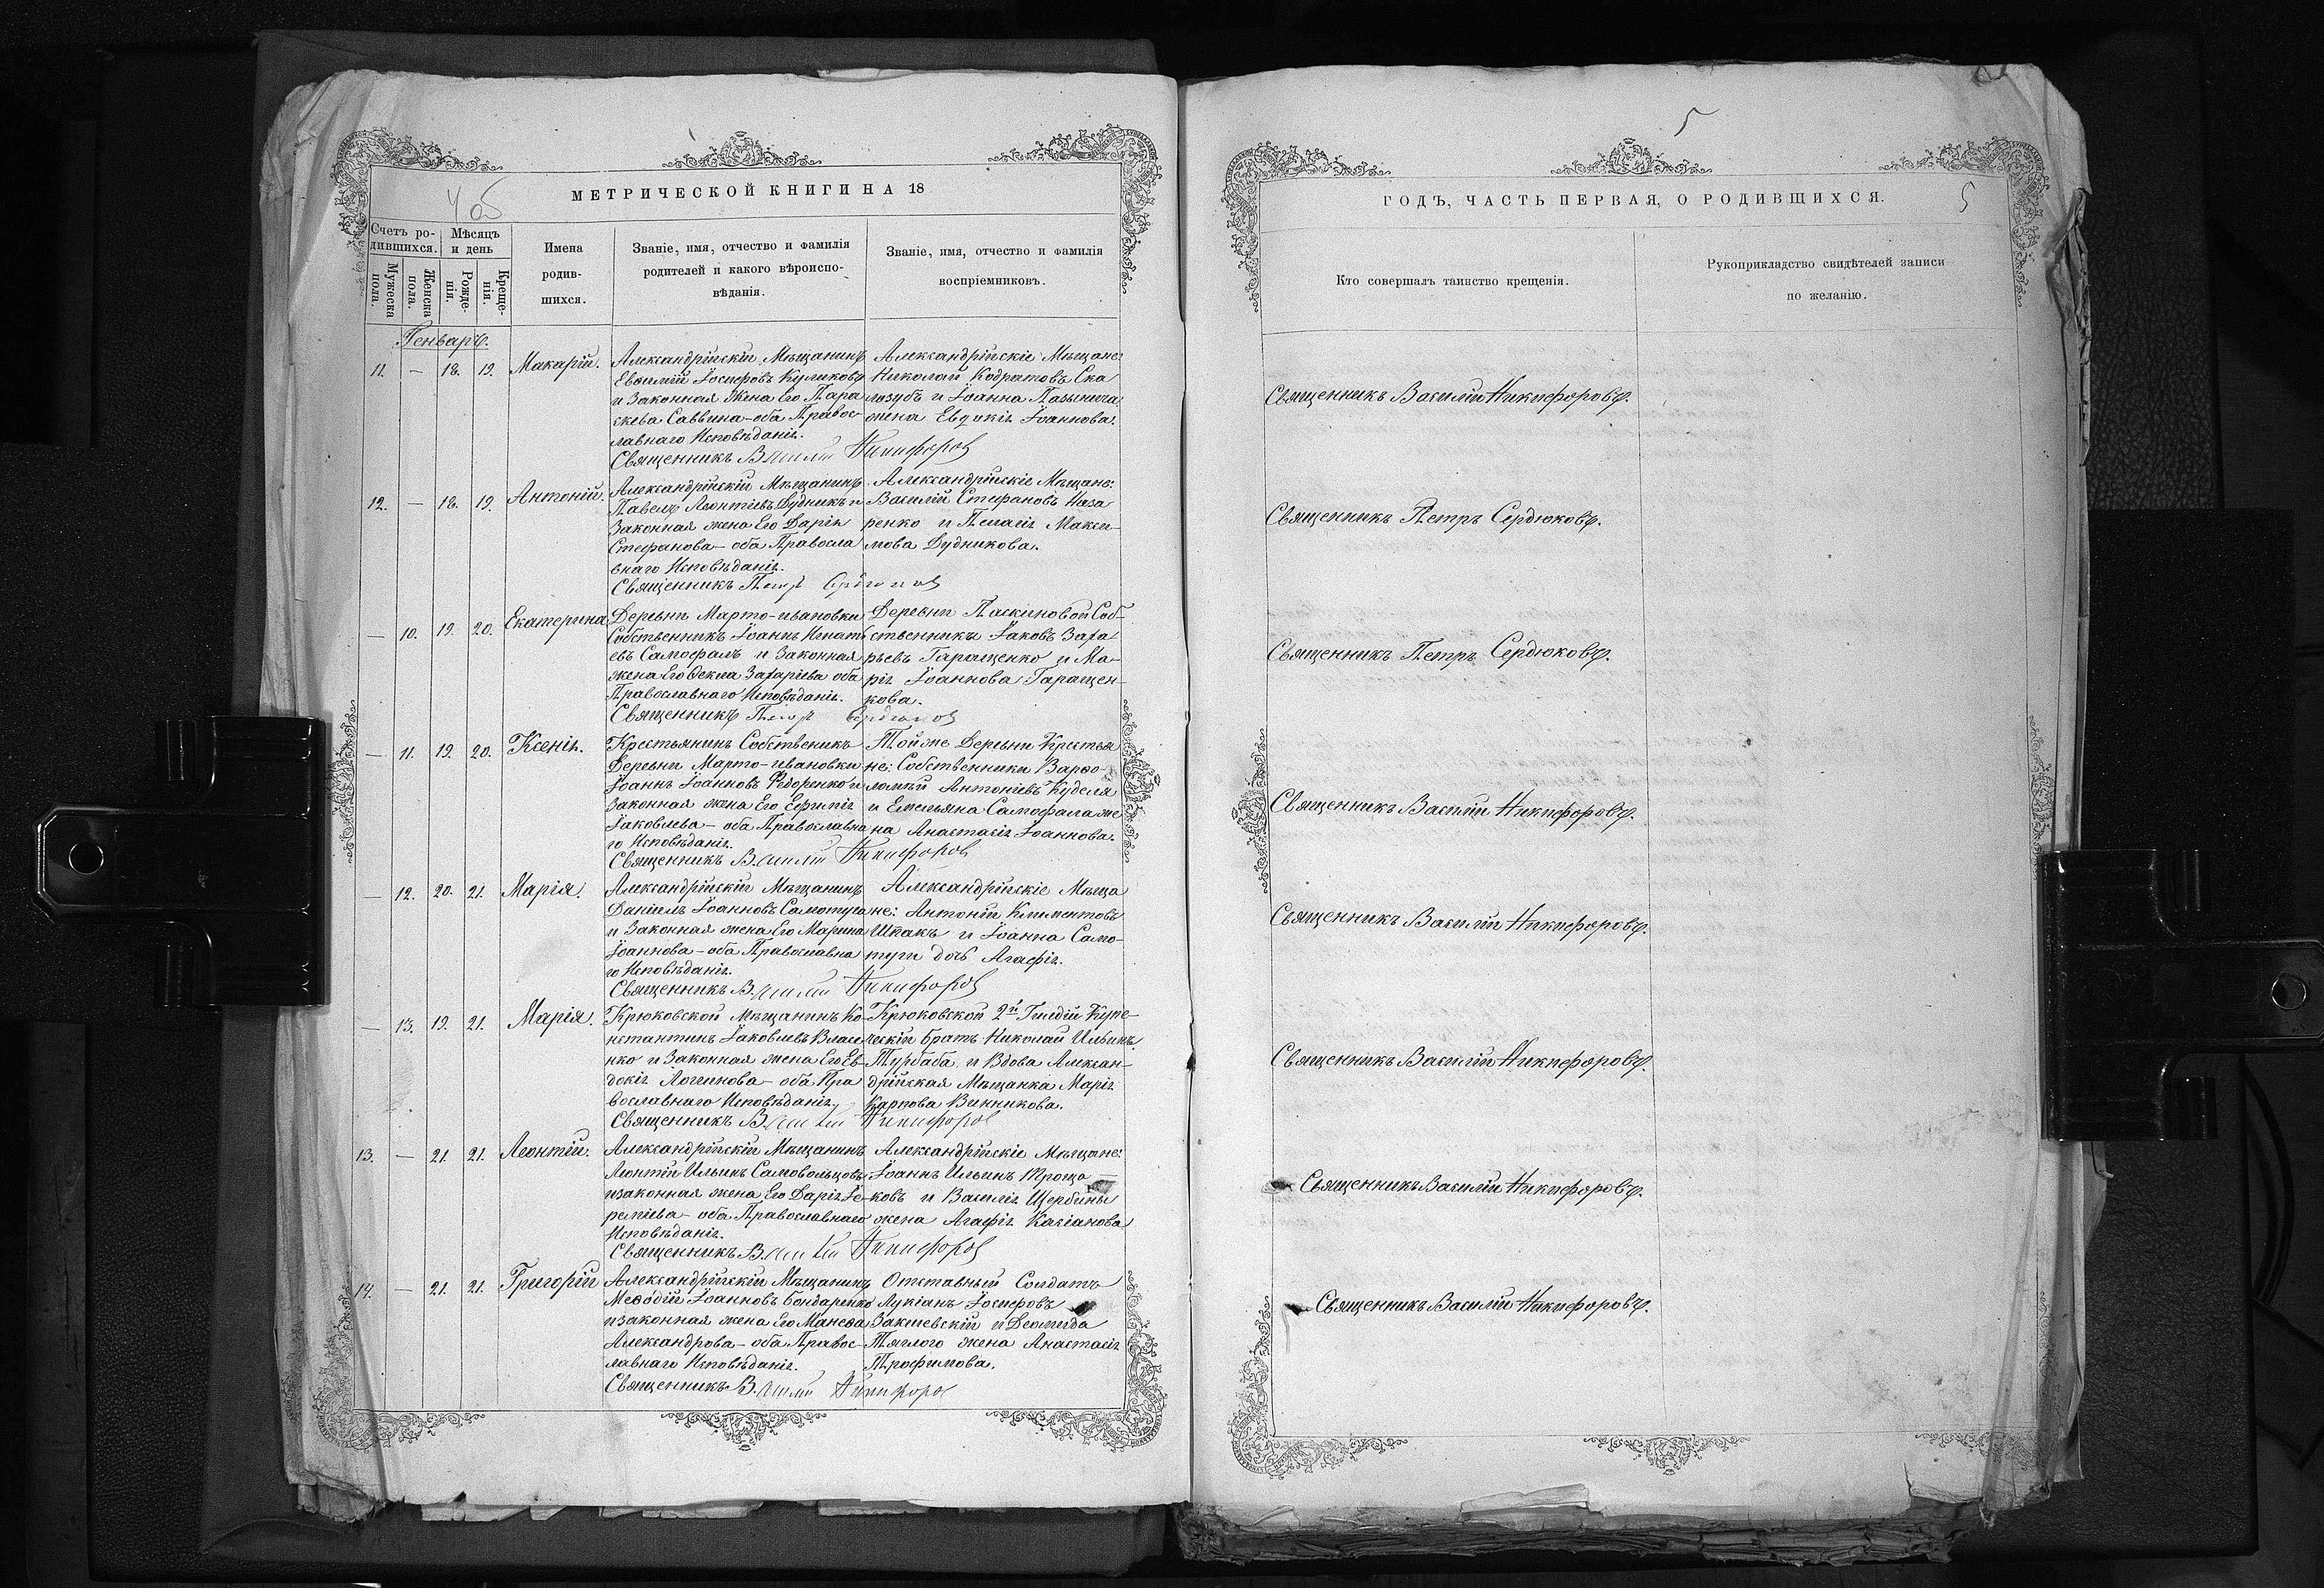 4 об
МЕТРИЧЕСКОЙ КНИГИ НА 18
Счетъ ро-
дившихся.
Мѣсяцъ
и день
Мужеска
пола.
Женска
пола.
Рожде-
нія.
Креще-
нія.
Имена
родив-
шихся.
Званіе, имя, отчество и фамилія
родителей и какого вѣроиспо-
вѣданія.
Званіе, имя, отчество и фамилія
воспріемниковъ.
Генварь.
11. — 18. 19. Макарій.
Александрійскій Мѣщанинъ
Евѳимій Іосифовъ Куликовъ
и Законная Жена Его Пара
скева Саввина - оба Правос-
лавнаго Исповѣданія.
Священникъ Василій Никифоров
Александрійскіе Мѣщане:
Николай Кодратовъ Ска
лозубъ и Іоанна
жена Евдокія Іоаннова.
12. — 18. 19. Антоній.
Александрійскій Мѣщанинъ
Павелъ Леонтіевъ Дудникъ и
Законная жена Его Дарія
Стефанова - оба Правосла
внаго Исповѣданія.
Священникъ Петръ Сердюков
Александрійскіе Мѣщане:
Василій Стефановъ
ренко и Пелагія Макси-
мова Дудникова.
— 10. 19. 20. Екатерина
Деревни Марто-ивановки
Собственникъ Іоаннъ Игнатi
евъ Самофалъ и Законная
жена Его Ѳекла Захаріева оба
Православнаго Исповѣданія.
Священникъ Петръ Сердюков
Деревни Паскиновой Соб-
ственники Іаковъ Заха
рьевъ Гаращенко и Ма-
рія Іоаннова Гаращен-
кова.
— 11. 19. 20. Ксенія.
Крестьянинъ Собственикъ
Деревни Марто-ивановки
Іоаннъ Іоанновъ Федоренко и
Законная жена Его Ефимія
Іаковлева - оба Православна
го Исповѣданія.
Священникъ Василій Никифоров
Тойже Деревни Крестья
не: Собственники Варѳо-
ломій Антоніевъ Куделя
и Емельяна Самофала же
на Анастасія Іоаннова.
— 12. 20. 21. Марія.
Александрійскій Мѣщанинъ
Даніилъ Іоанновъ Самотуга
и Законная жена Его Марина
Іоаннова - оба Православна
го Исповѣданія.
Священникъ Василій Никифоров
Александрійскіе Мѣща
не: Антоній Климентовъ
Шпакъ и Іоанна Само-
туги дочь Агафія.
— 13. 19. 21. Марія.
Крюковской Мѣщанинъ Ко-
нстантинъ Іаковлевъ Власе
нко и Законная жена Его Ев-
докія Логгинова - оба Пра
вославнаго Исповѣданія,
Священникъ Василій Никифоров
Крюковской 2й Гилдіи Купе-
ческій братъ Николай Ильинъ
Турбаба и Вдова Алексан-
дрійская Мѣщанка Марія
Карпова Винникова.
13. — 21. 21. Леонтій.
Александрійскій Мѣщанинъ
Леонтій Ильинъ Самовольцовъ
и законная жена Его Дарія Іе-
реміева - оба Православнаго
Исповѣданія.
Священникъ Василій Никифоров
Александрійскіе Мѣщане:
Іоаннъ Ильинъ Троща-
ковъ и Василія Щербины
жена Агафія Касіанова
14. — 21. 21. Григорій
Александрійскій Мѣщанинъ
Меѳодій Іоанновъ Бондаренко
и законная жена Его Манефа
Александрова - оба Правос-
лавнаго Исповѣданія.
Священникъ Василій Никифоров
Отставный Солдатъ
Лукіанъ Іосифовъ
Закшевскій и Деомида
Тяглого жена Анастасія
Трофимова.
5
5
ГОДЪ, ЧАСТЬ ПЕРВАЯ, О РОДИВШИХСЯ.
Кто совершалъ таинство крещенія.
Рукоприкладство свидѣтелей записи
по желанію.
Священникъ Василій Никифоровъ.
Священникъ Петръ Сердюковъ.
Священникъ Петръ Сердюковъ.
Священникъ Василій Никифоровъ.
Священникъ Василій Никифоровъ.
Священникъ Василій Никифоровъ.
Священникъ Василій Никифоровъ.
Священникъ Василій Никифоровъ.